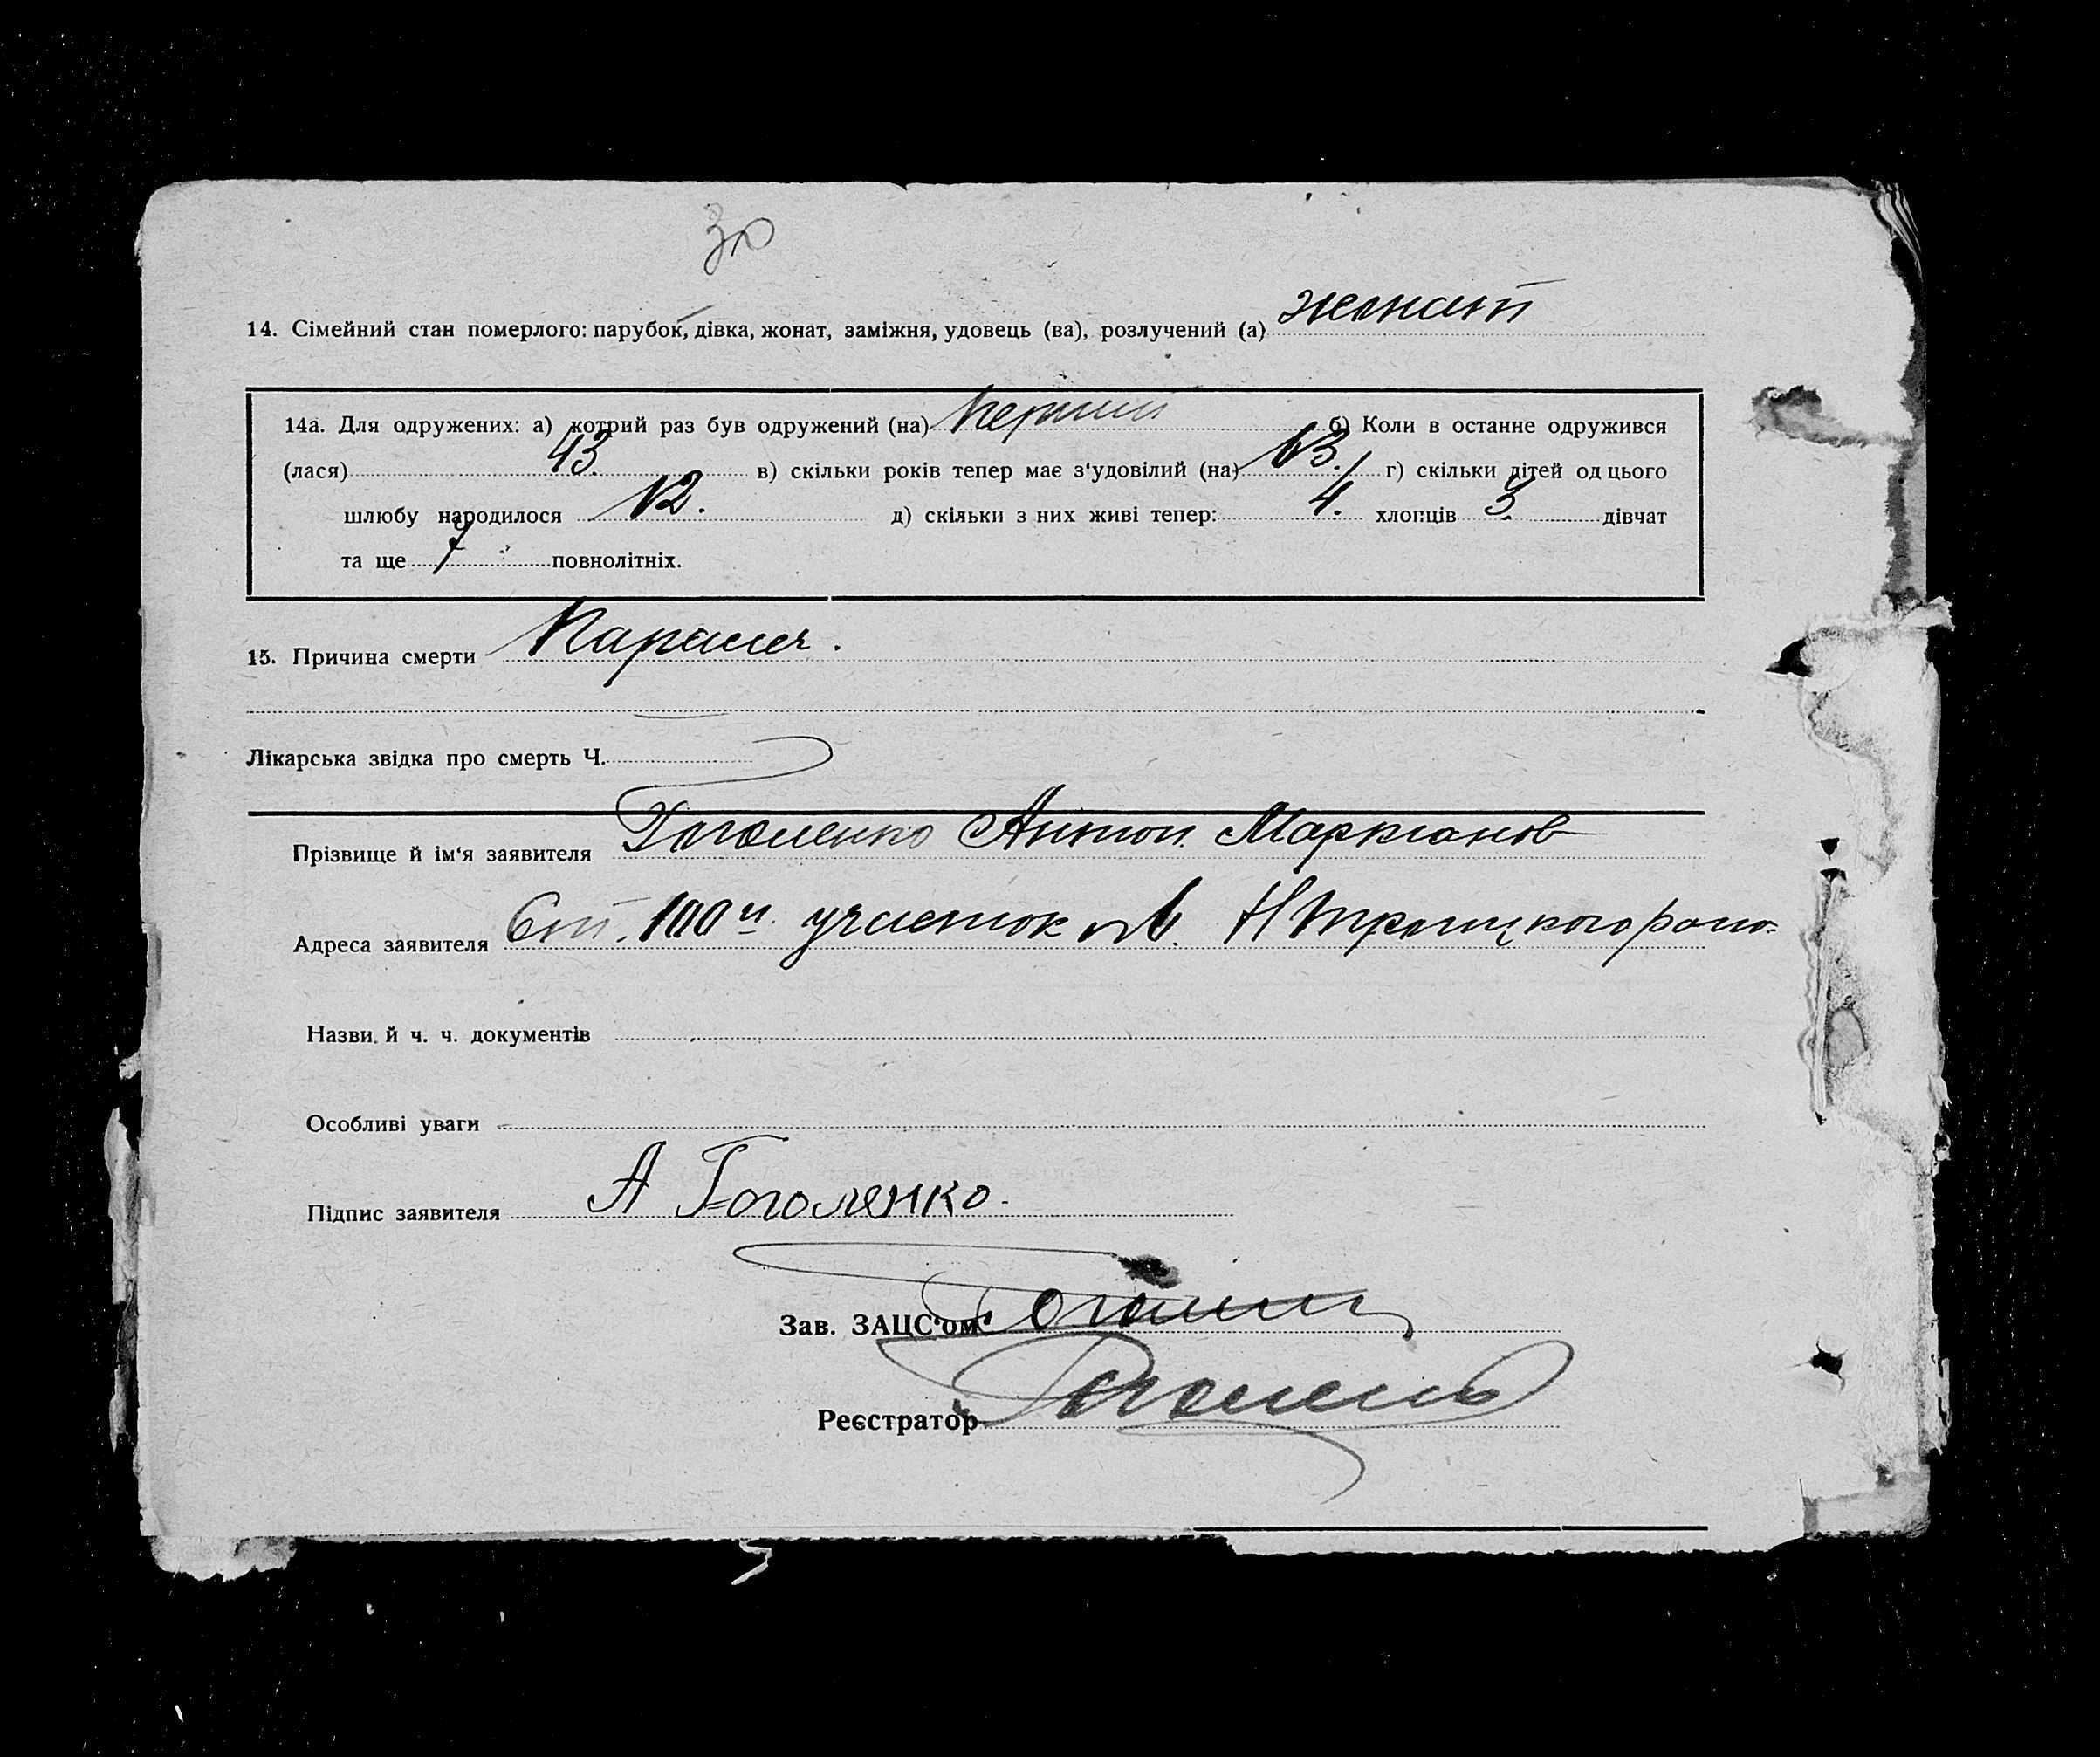 30
14. Сімейний стан померлого: парубок, дівка, жонат, заміжня, удовець (ва), розлучений (а) женат
14а. Для одружених: а) котрий раз був одружений (на) Первый б) Коли в останне одружився
(лася) 43 в) скільки років тепер має з'удовілий (на) 63. г) скільки дітей од цього
шлюбу народилося 12. д) скільки з них живі тепер: 4. хлопців 3 дівчат
та ще 7 повнолітніх.
15. Причина смерти
Лікарська звідка про смерть Ч.
Прізвище й ім'я заявителя Гоголенко Антон Маркианов
Адреса заявителя Ст. 100й участок Н Троицкого
Назви й ч. ч. документів
Особливі уваги
Підпис заявителя А Гоголенко.
Зав. ЗАЦС'ом
Реєстратор